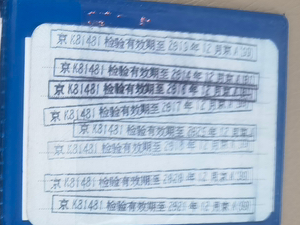 京 K81481 检验有效期至 2013 年 12 月京 A
京 K81481 检验有效期至 2014 年 12 月京 A
京 K81481 检验有效期至 2016 年 12 月京 A
京 K81481 检验有效期至 2017 年 12 月京 A
京 K81481 检验有效期至 2025 年 12 月京 A
京 K81481 检验有效期至 年 12 月京 A
京 K81481 检验有效期至 2020 年 12 月京 A
京 K81481 检验有效期至 2021 年 12 月京 A